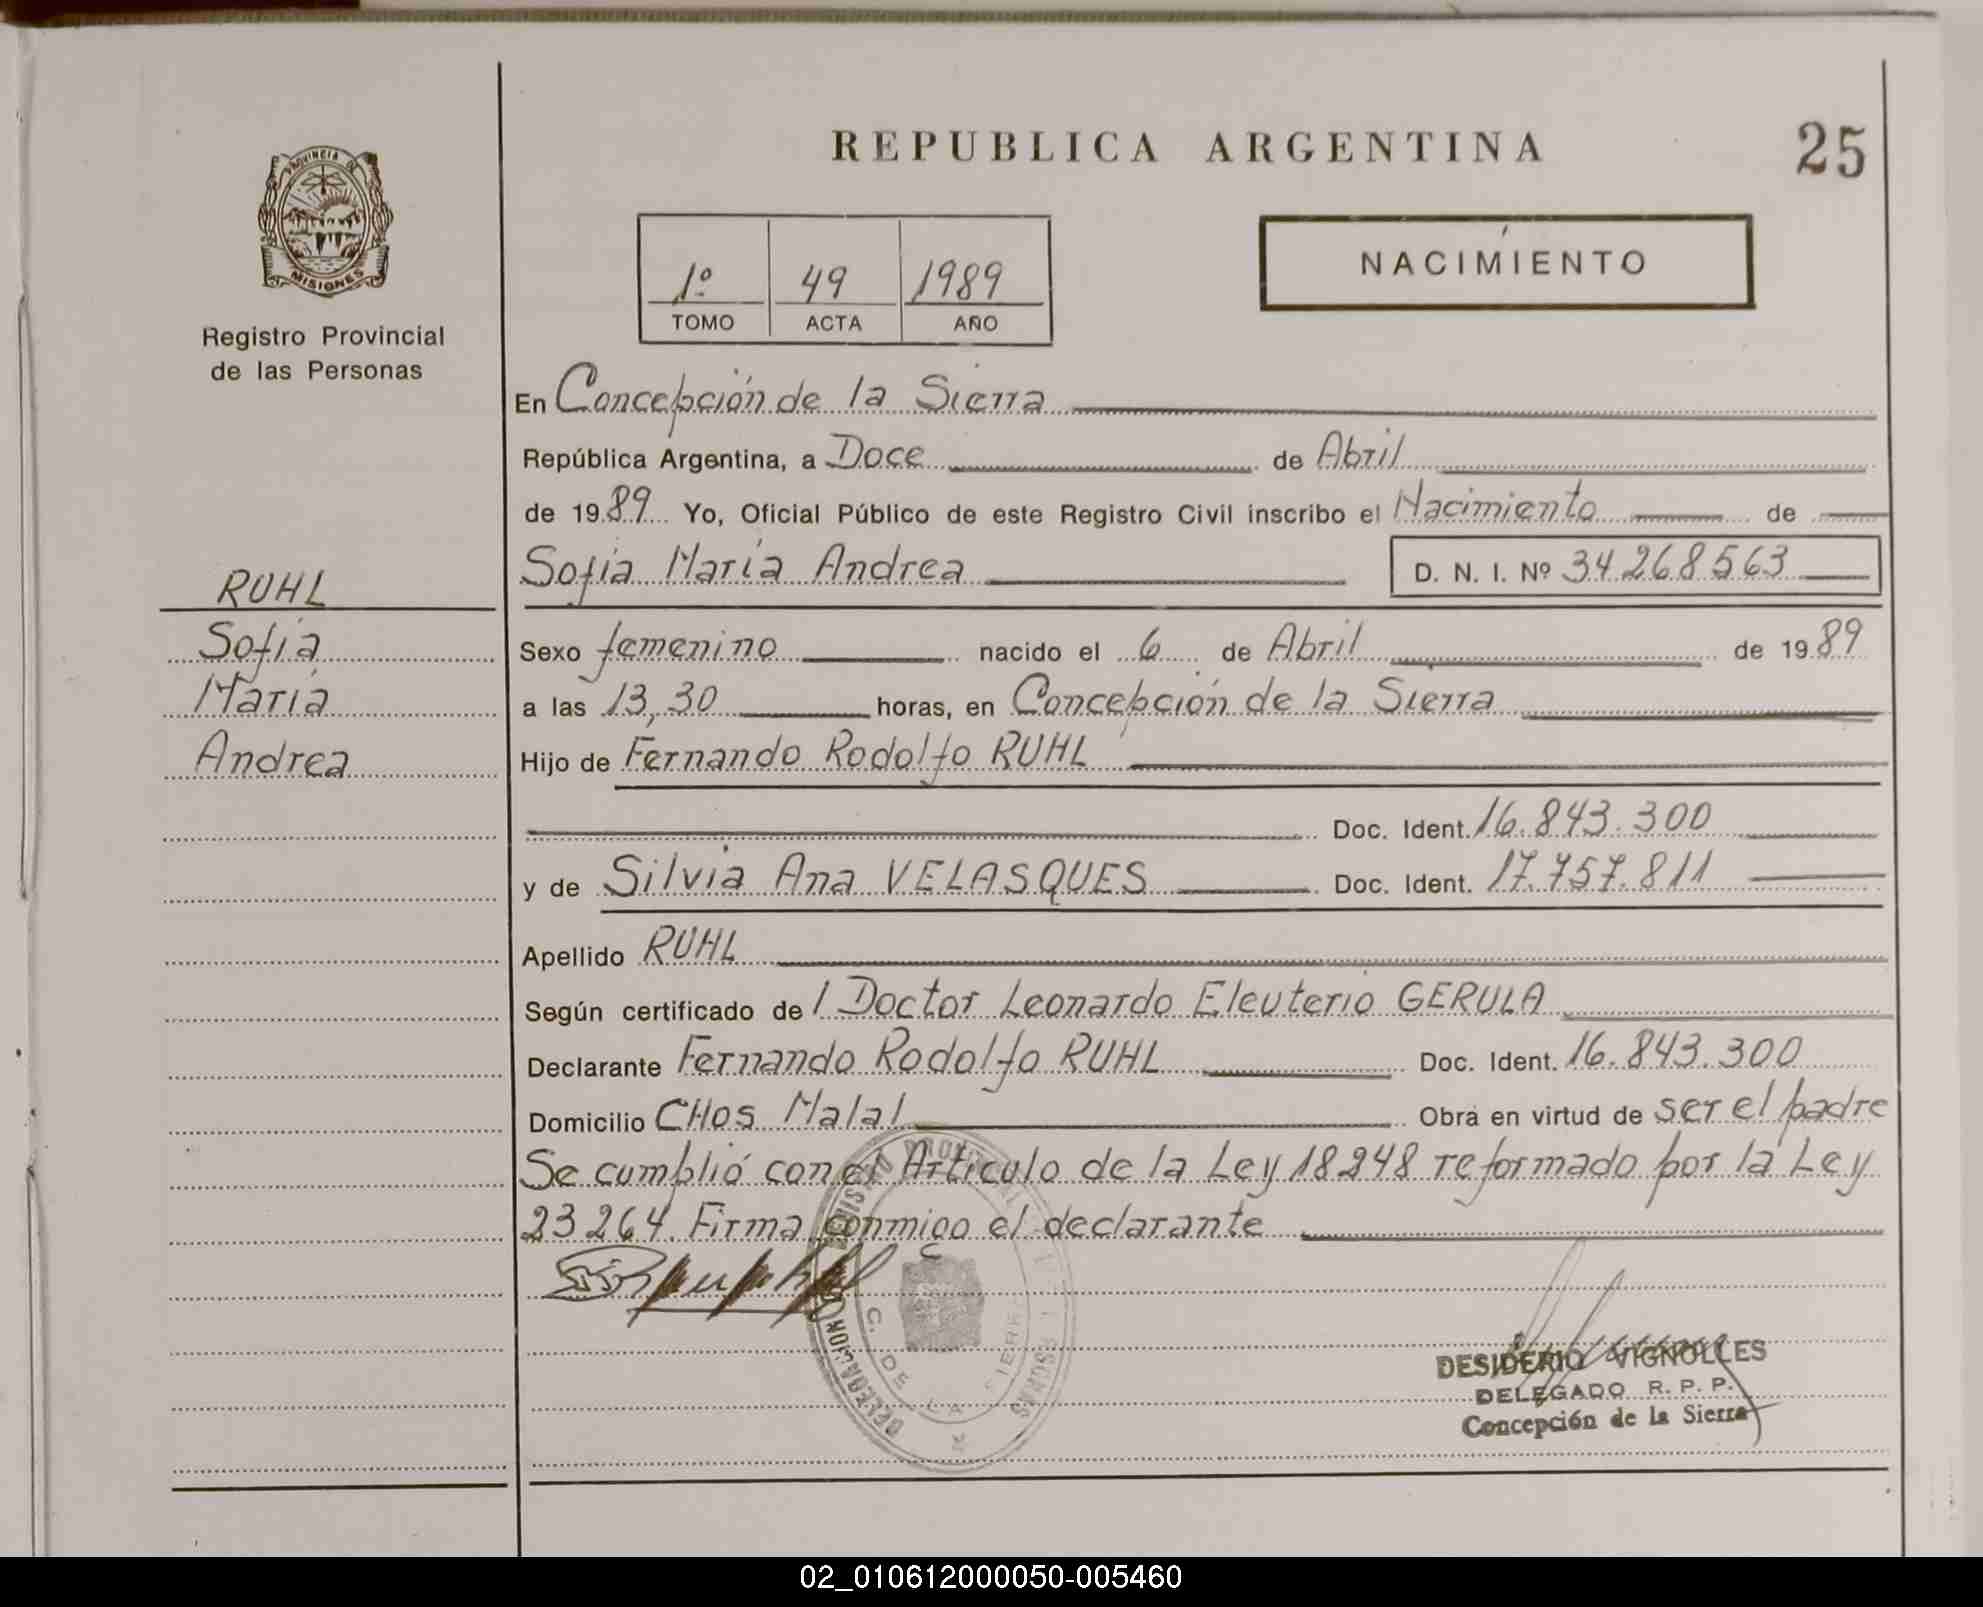 REPUBLICA ARGENTINA
25
PROVINCIA DE
MISIONES
Registro Provincial
de las Personas
1º 49 1989
TOMO ACTA AÑO
NACIMIENTO
En Concepción de la Sierra
República Argentina, a Doce de Abril
de 1989 Yo, Oficial Público de este Registro Civil inscribo el Nacimiento de
Sofia María Andrea D. N. I. Nº 34.268.563
RUHL
Sofía
María
Andrea
Sexo femenino nacido el 6 de Abril de 1989
a las 13,30 horas, en Concepción de la Sierra
Hijo de Fernando Rodolfo RUHL
Doc. Ident. 16.843.300
y de Silvia Ana VELASQUES Doc. Ident. 17.757.811
Apellido RUHL
Según certificado de l Doctor Leonardo Eleuterio GERULA
Declarante Fernando Rodolfo RUHL Doc. Ident. 16.843.300
Domicilio CHos Malal Obra en virtud de ser el padre
Se cumplió con el Artículo de la Ley 18248 reformado por la Ley
23264. Firma conmigo el declarante
REGISTRO PROVINCIAL
DELEGACION
C. DE LA SIERRA
DESIDERIO VIGNOLLES
DELEGADO R. P. P.
Concepción de la Sierra
02_010612000050-005460